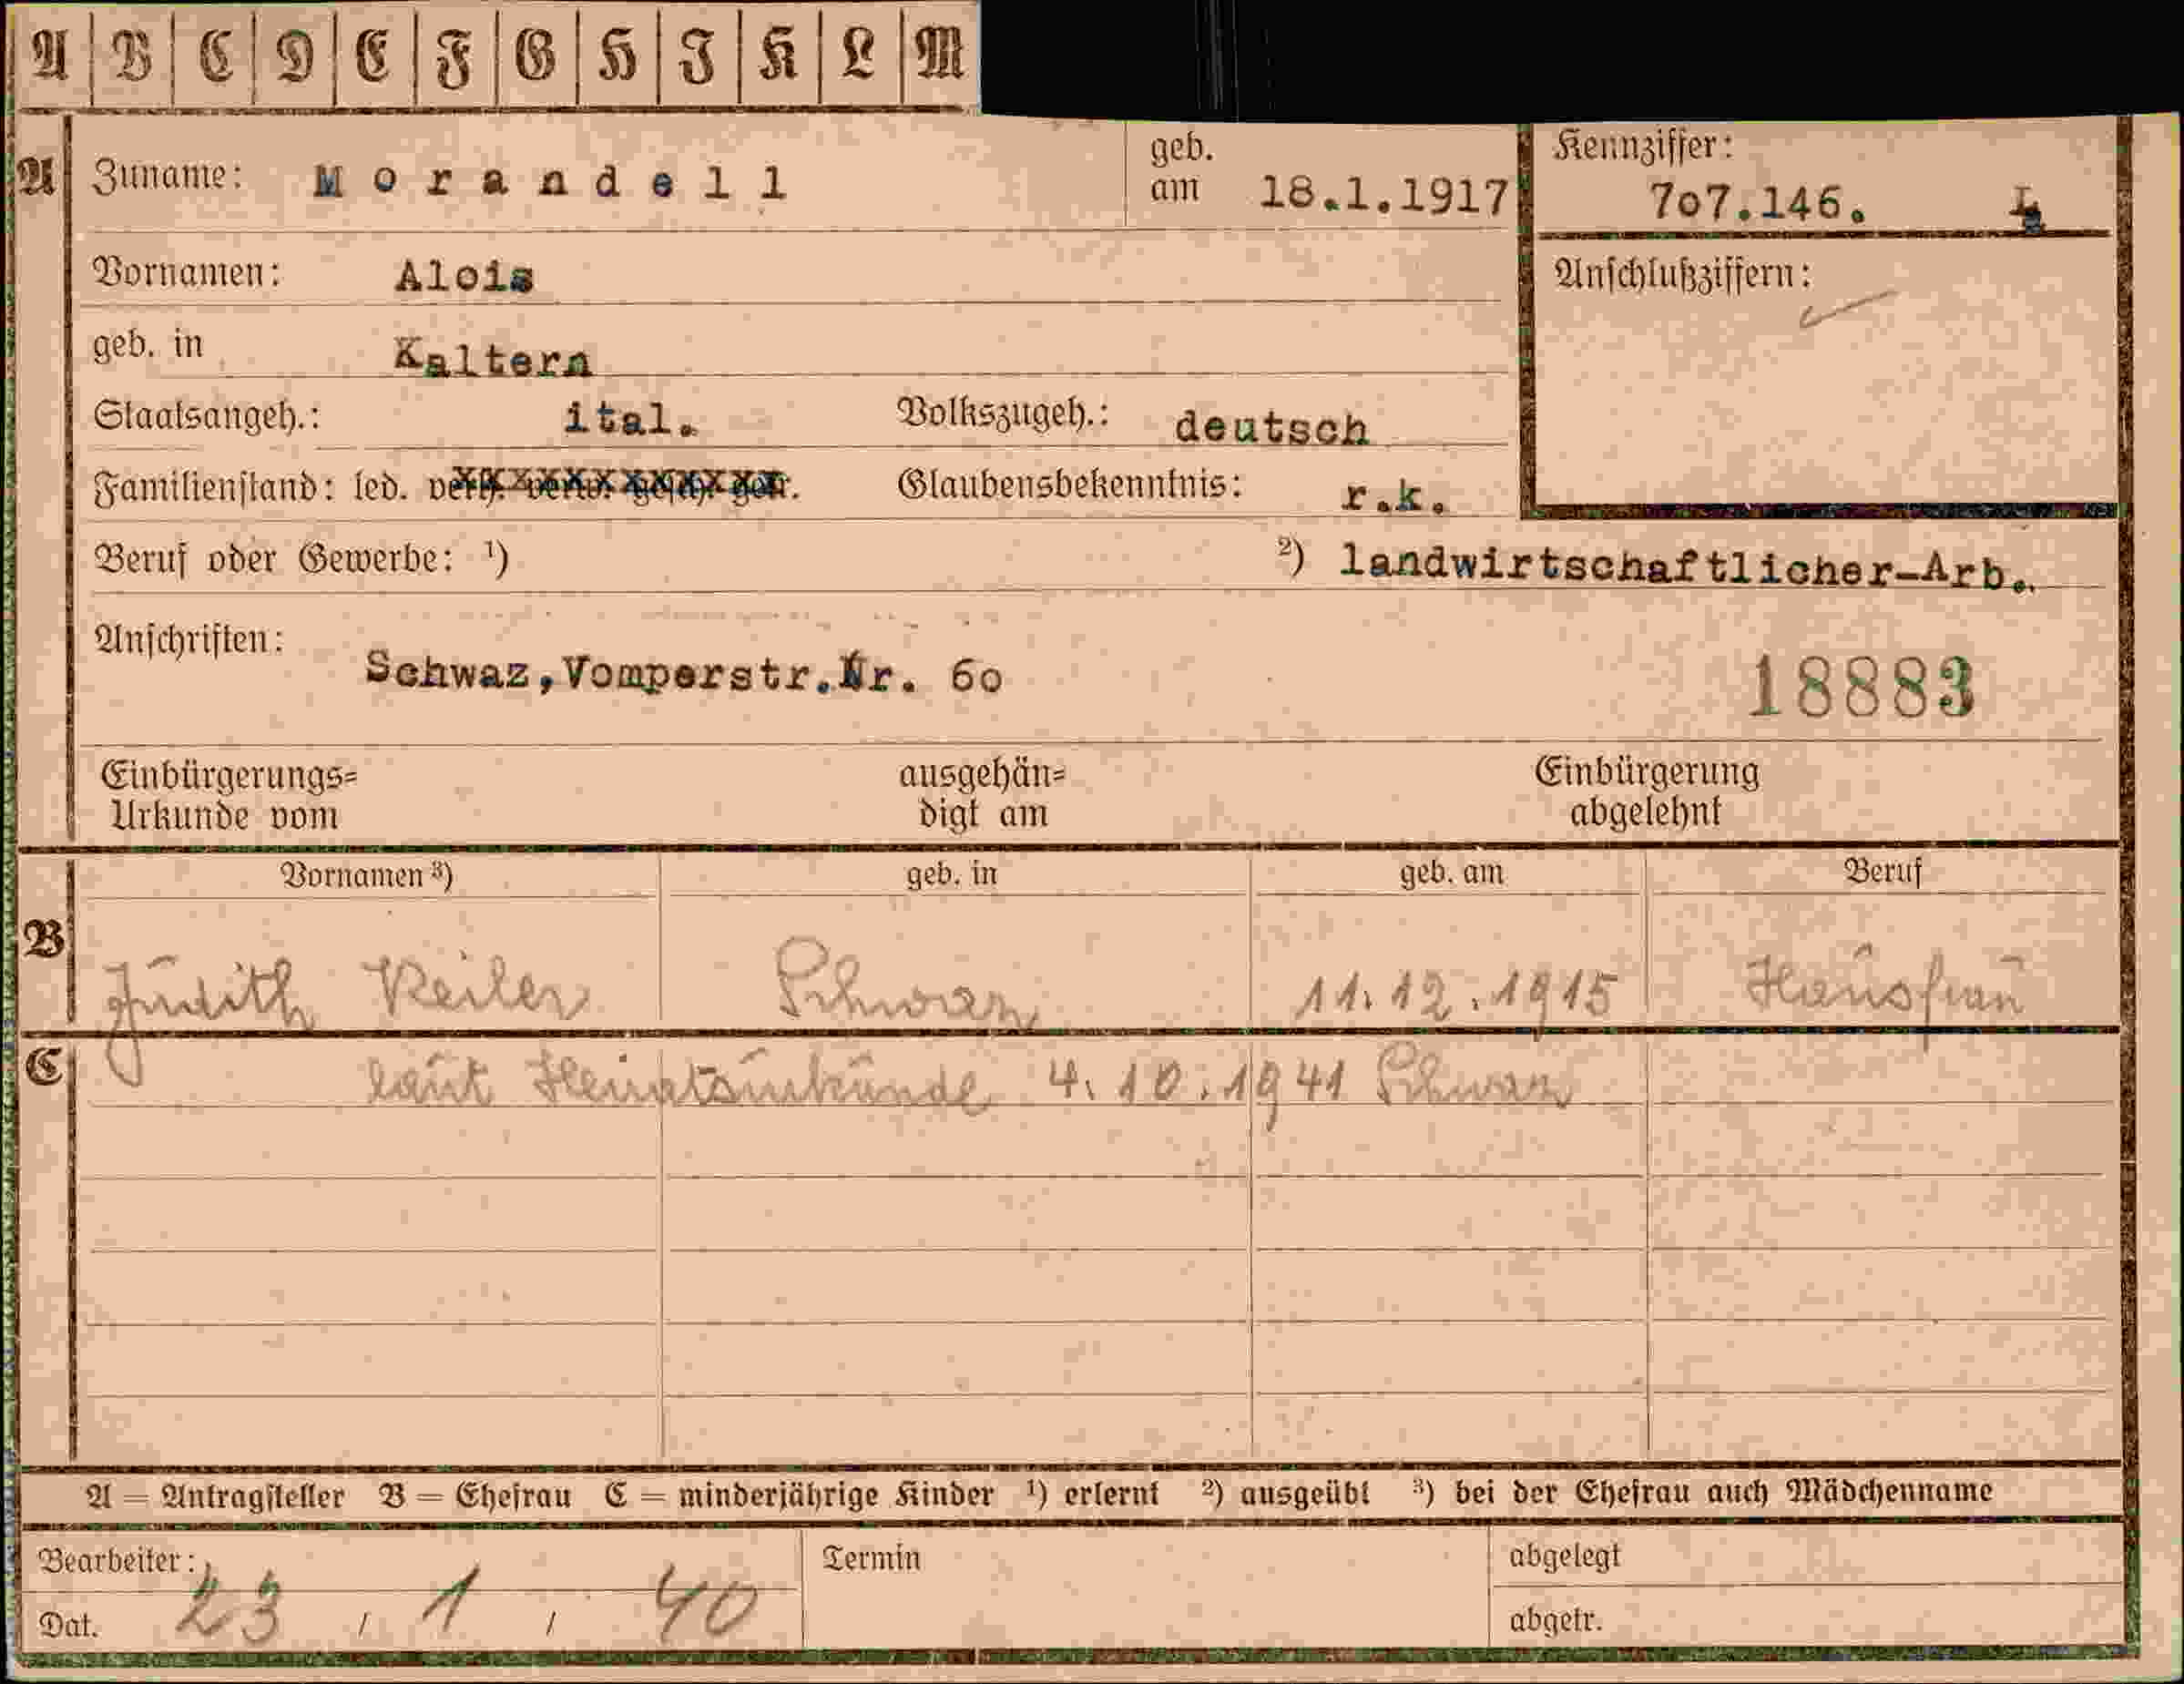 A B C D E F G H I K L M
A Zuname: Morandell geb. am 18.1.1917 Kennziffer: 707.146.
Vornamen: Alois Anschlußziffern:
geb. in Kaltern
Staatsangeh.: ital. Volkszugeh.: deutsch
Familienstand: led. verh. verw. gesch. getr. Glaubensbekenntnis: r.k.
Beruf oder Gewerbe: ¹) ²) landwirtschaftlicher-Arb.
Anschriften:
Schwaz,Vomperstr.Nr. 60 18883
Einbürgerungs= ausgehän= Einbürgerung
Urkunde vom digt am abgelehnt
Vornamen ³) geb. in geb. am Beruf
B Judith Schwaz 11.12.1915 Hausfrau
C laut Heiratsurkunde 4.10.1941 Schwaz
A = Antragsteller B = Ehefrau C = minderjährige Kinder ¹) erlernt ²) ausgeübt ³) bei der Ehefrau auch Mädchenname
Bearbeiter: Termin abgelegt
Dat. 23 / 1 / 40 abgetr.